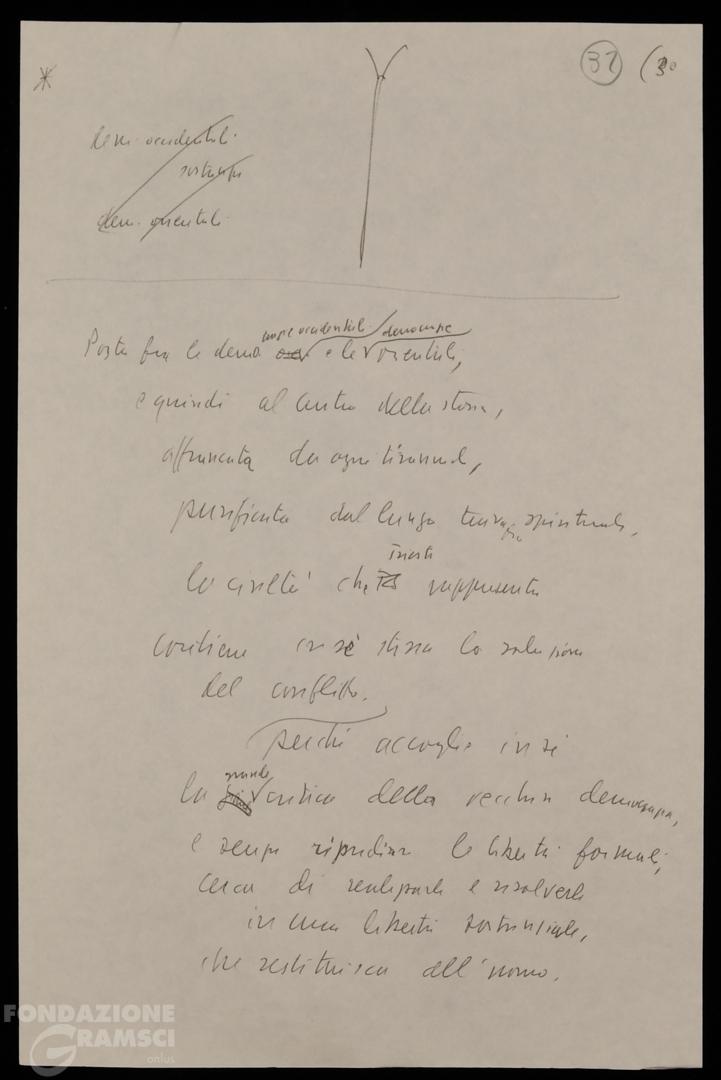 31 (30
*
dem. occidentali
sostanza
dem. orientali
imp. occidentale / democrazie
Posta fra le demo e le orientali,
e quindi al centro della storia,
affrancata da ogni tirannide,
purificata dal lungo spirituale,
Trieste
la civiltà che rappresenta
contiene in sé stessa la soluzione
del conflitto.
perché accoglie in sé
grande
la critica della vecchia democrazia,
e senza ripudiare le libertà formali,
cerca di realizzarle e risolverle
in una libertà sostanziale,
che restituisca all'uomo.
FONDAZIONE
GRAMSCI
onlus